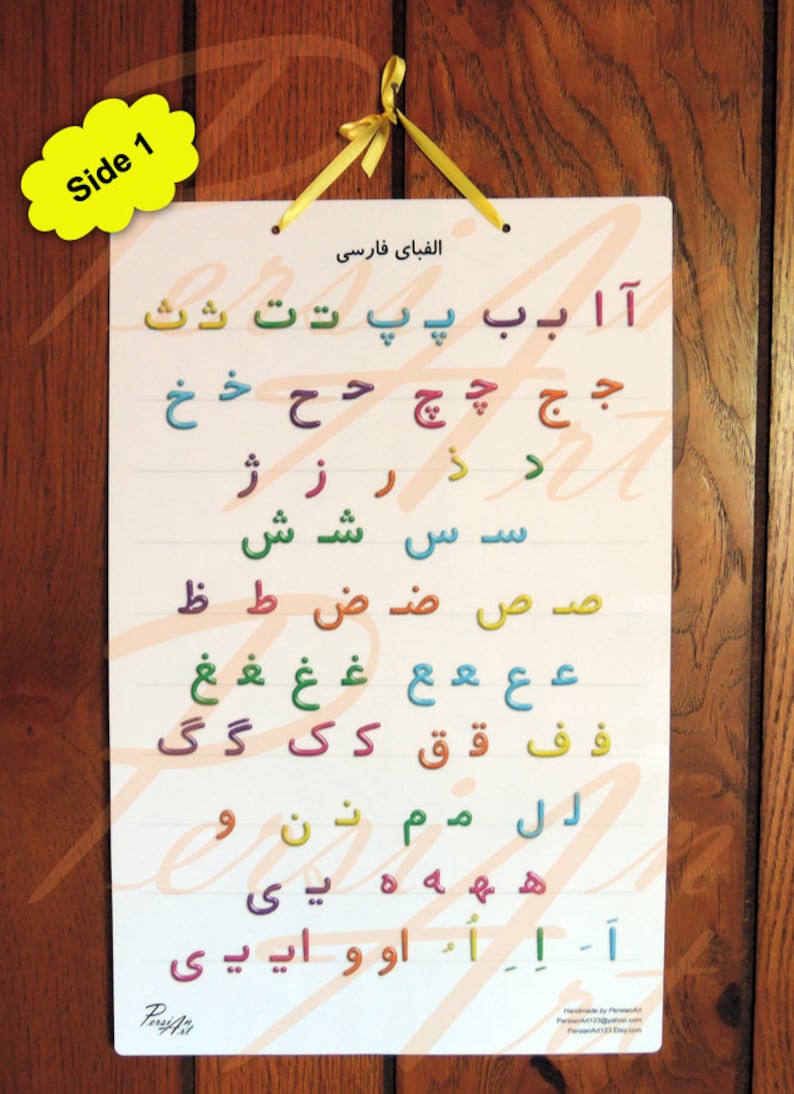 Side 1
الفبای فارسی
آ ا بـ ب پـ پ تـ ت ثـ ث
جـ ج چـ چ حـ ح خـ خ
د ذ ر ز ژ
سـ س شـ ش
صـ ص ضـ ض ط ظ
عـ ع ـعـ ـع غـ غ ـغـ ـغ
فـ ف قـ ق کـ ک گـ گ
لـ ل مـ م نـ ن و
هـ ـهـ ـه ه یـ ی
اَ ـَ اِ ـِ اُ ـُ او و ایـ یـ ی
Persian Art
Handmade by PersianArt
PersianArt123@yahoo.com
PersianArt123.Etsy.com